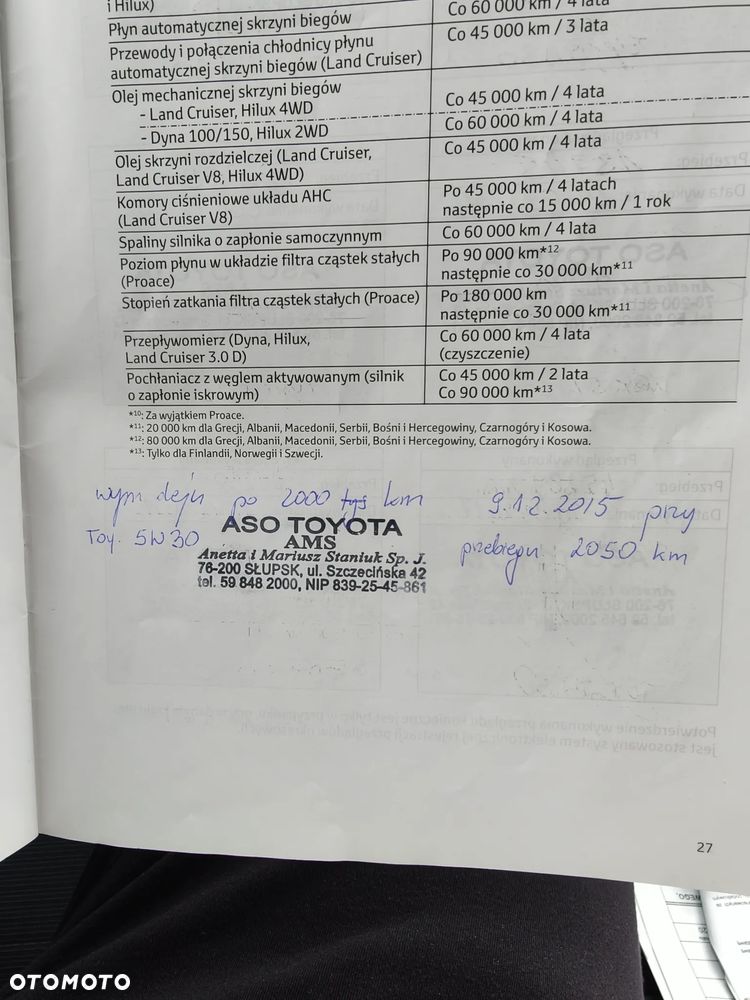 i Hilux)
Co 60 000 km / 4 lata
Płyn automatycznej skrzyni biegów
Co 45 000 km / 3 lata
Przewody i połączenia chłodnicy płynu
automatycznej skrzyni biegów (Land Cruiser)
Olej mechanicznej skrzyni biegów
- Land Cruiser, Hilux 4WD
Co 45 000 km / 4 lata
- Dyna 100/150, Hilux 2WD
Co 60 000 km / 4 lata
Olej skrzyni rozdzielczej (Land Cruiser,
Land Cruiser V8, Hilux 4WD)
Co 45 000 km / 4 lata
Komory ciśnieniowe układu AHC
(Land Cruiser V8)
Po 45 000 km / 4 latach
następnie co 15 000 km / 1 rok
Spaliny silnika o zapłonie samoczynnym
Co 60 000 km / 4 lata
Poziom płynu w układzie filtra cząstek stałych
(Proace)
Po 90 000 km*12
następnie co 30 000 km*11
Stopień zatkania filtra cząstek stałych (Proace)
Po 180 000 km
następnie co 30 000 km*11
Przepływomierz (Dyna, Hilux,
Land Cruiser 3.0 D)
Co 60 000 km / 4 lata
(czyszczenie)
Pochłaniacz z węglem aktywowanym (silnik
o zapłonie iskrowym)
Co 45 000 km / 2 lata
Co 90 000 km*13
*10: Za wyjątkiem Proace.
*11: 20 000 km dla Grecji, Albanii, Macedonii, Serbii, Bośni i Hercegowiny, Czarnogóry i Kosowa.
*12: 80 000 km dla Grecji, Albanii, Macedonii, Serbii, Bośni i Hercegowiny, Czarnogóry i Kosowa.
*13: Tylko dla Finlandii, Norwegii i Szwecji.
wym oleju po 2000 km 9.12.2015 przy
Toy. 5W30 przebiegu 2050 km
ASO TOYOTA
AMS
Anetta i Mariusz Staniuk Sp. J.
76-200 SŁUPSK, ul. Szczecińska 42
tel. 59 848 2000, NIP 839-25-45-861
Potwierdzenie wykonania przeglądu konieczne jest tylko w przypadku, gdy
jest stosowany system elektronicznej rejestracji przeglądów okresowych.
27
OTOMOTO